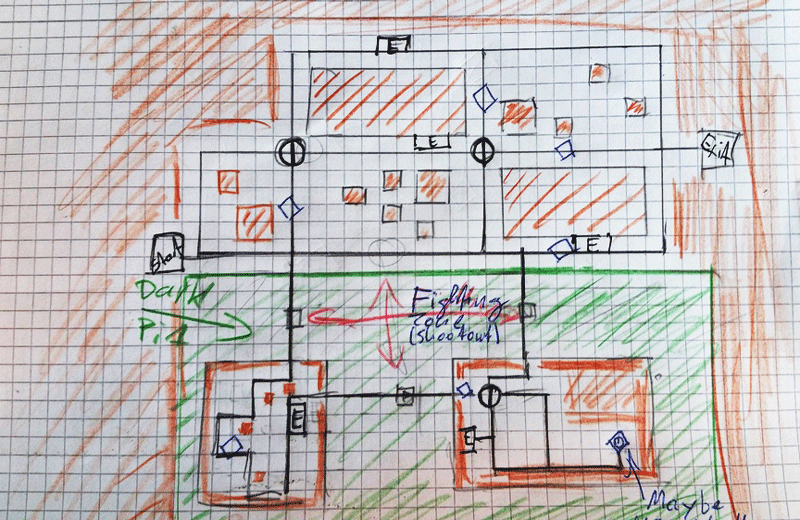 E
E
Exit
E
Start
Dark
Pit
Fighting
zone
(Shootout)
E
E
Maybe